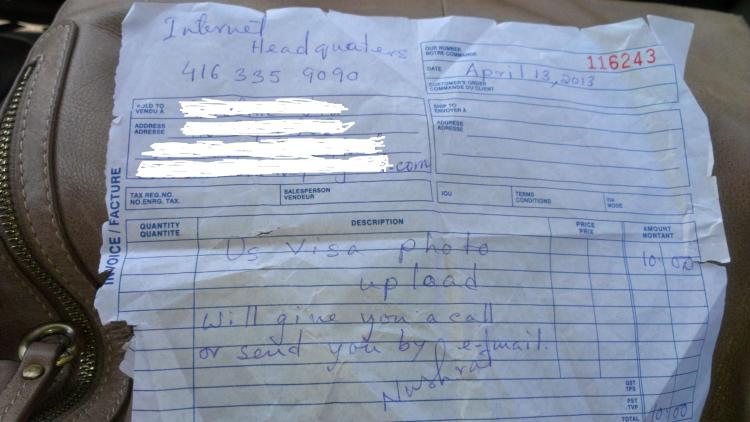 Internet
Headquaters
416 335 9090
OUR NUMBER
NOTRE COMMANDE
116243
DATE April 13, 2013
CUSTOMER'S ORDER
COMMANDE DU CLIENT
SOLD TO
VENDU À
ADDRESS
ADRESSE
.com
SHIP TO
ENVOYER À
ADDRESS
ADRESSE
INVOICE / FACTURE
TAX REG. NO.
NO. ENRG. TAX.
SALESPERSON
VENDEUR
TERMS
CONDITIONS
VIA
MODE
QUANTITY
QUANTITE
DESCRIPTION
PRICE
PRIX
AMOUNT
MONTANT
Us visa photo 10.00
upload
Will give you a call
or send you by e-mail.
Nushrat
GST
TPS
PST
TVP
TOTAL 10.00